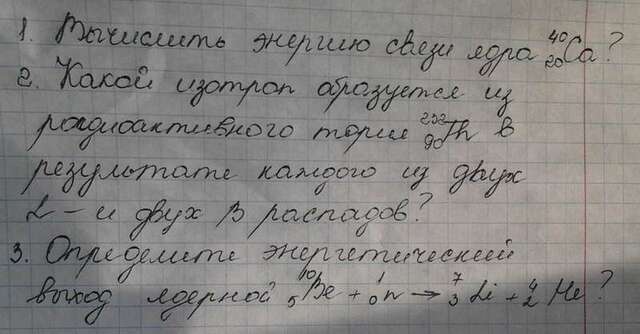 1. Вычислить энергию связи ядра ⁴⁰₂₀Ca?
2. Какой изотоп образуется из
радиоактивного тория ²³²₉₀Th в
результате каждого из двух
α - и двух β распадов?
3. Определите энергетический
выход ядерной ¹⁰₅Be + ¹₀n → ⁷₃Li + ⁴₂He?